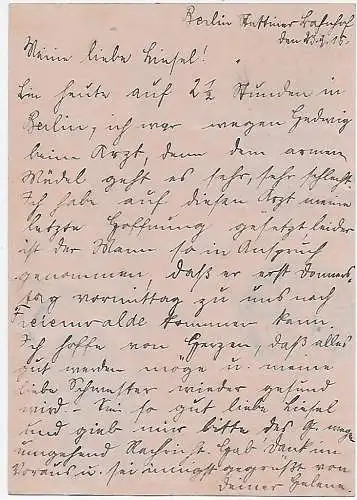 Berlin Stettiner Bahnhof
den 23.9.15.
Meine liebe Liesel!
Bin heute auf 2 1/2 Stunden in
Berlin, ich war wegen Hedwig
beim Arzt, denn dem armen
Mädel geht es sehr, sehr schlecht.
Ich habe auf diesen Arzt meine
letzte Hoffnung gesetzt, leider
ist der Mann so in Anspruch
genommen, daß er erst Donners-
tag vormittag zu uns nach
Freienwalde kommen kann.
Ich hoffe von Herzen, daß alles
gut werden möge u. meine
liebe Schwester wieder gesund
wird. – Sei so gut liebe Liesel
und gieb mir bitte des G.
umgehend Nachricht. Hab' Dank im
Voraus u. sei innigst gegrüßt von
deiner Helene.